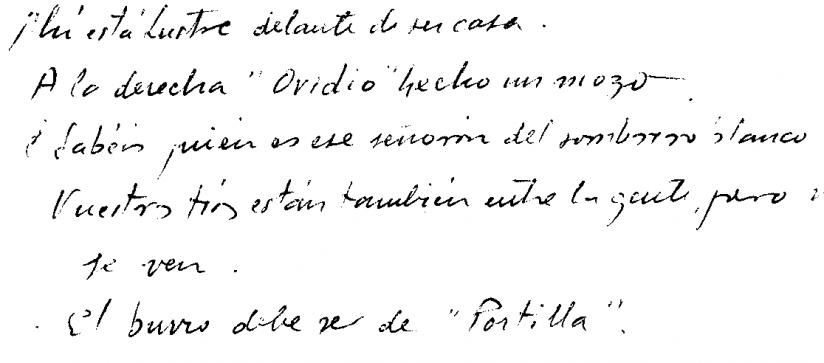 Ahí está Lustre delante de su casa.
A la derecha "Ovidio" hecho un mozo.
¿Sabéis quién es ese señorón del sombrero blanco
Vuestros tíos están también entre la gente, pero
se ven.
El burro debe ser de "Portilla".